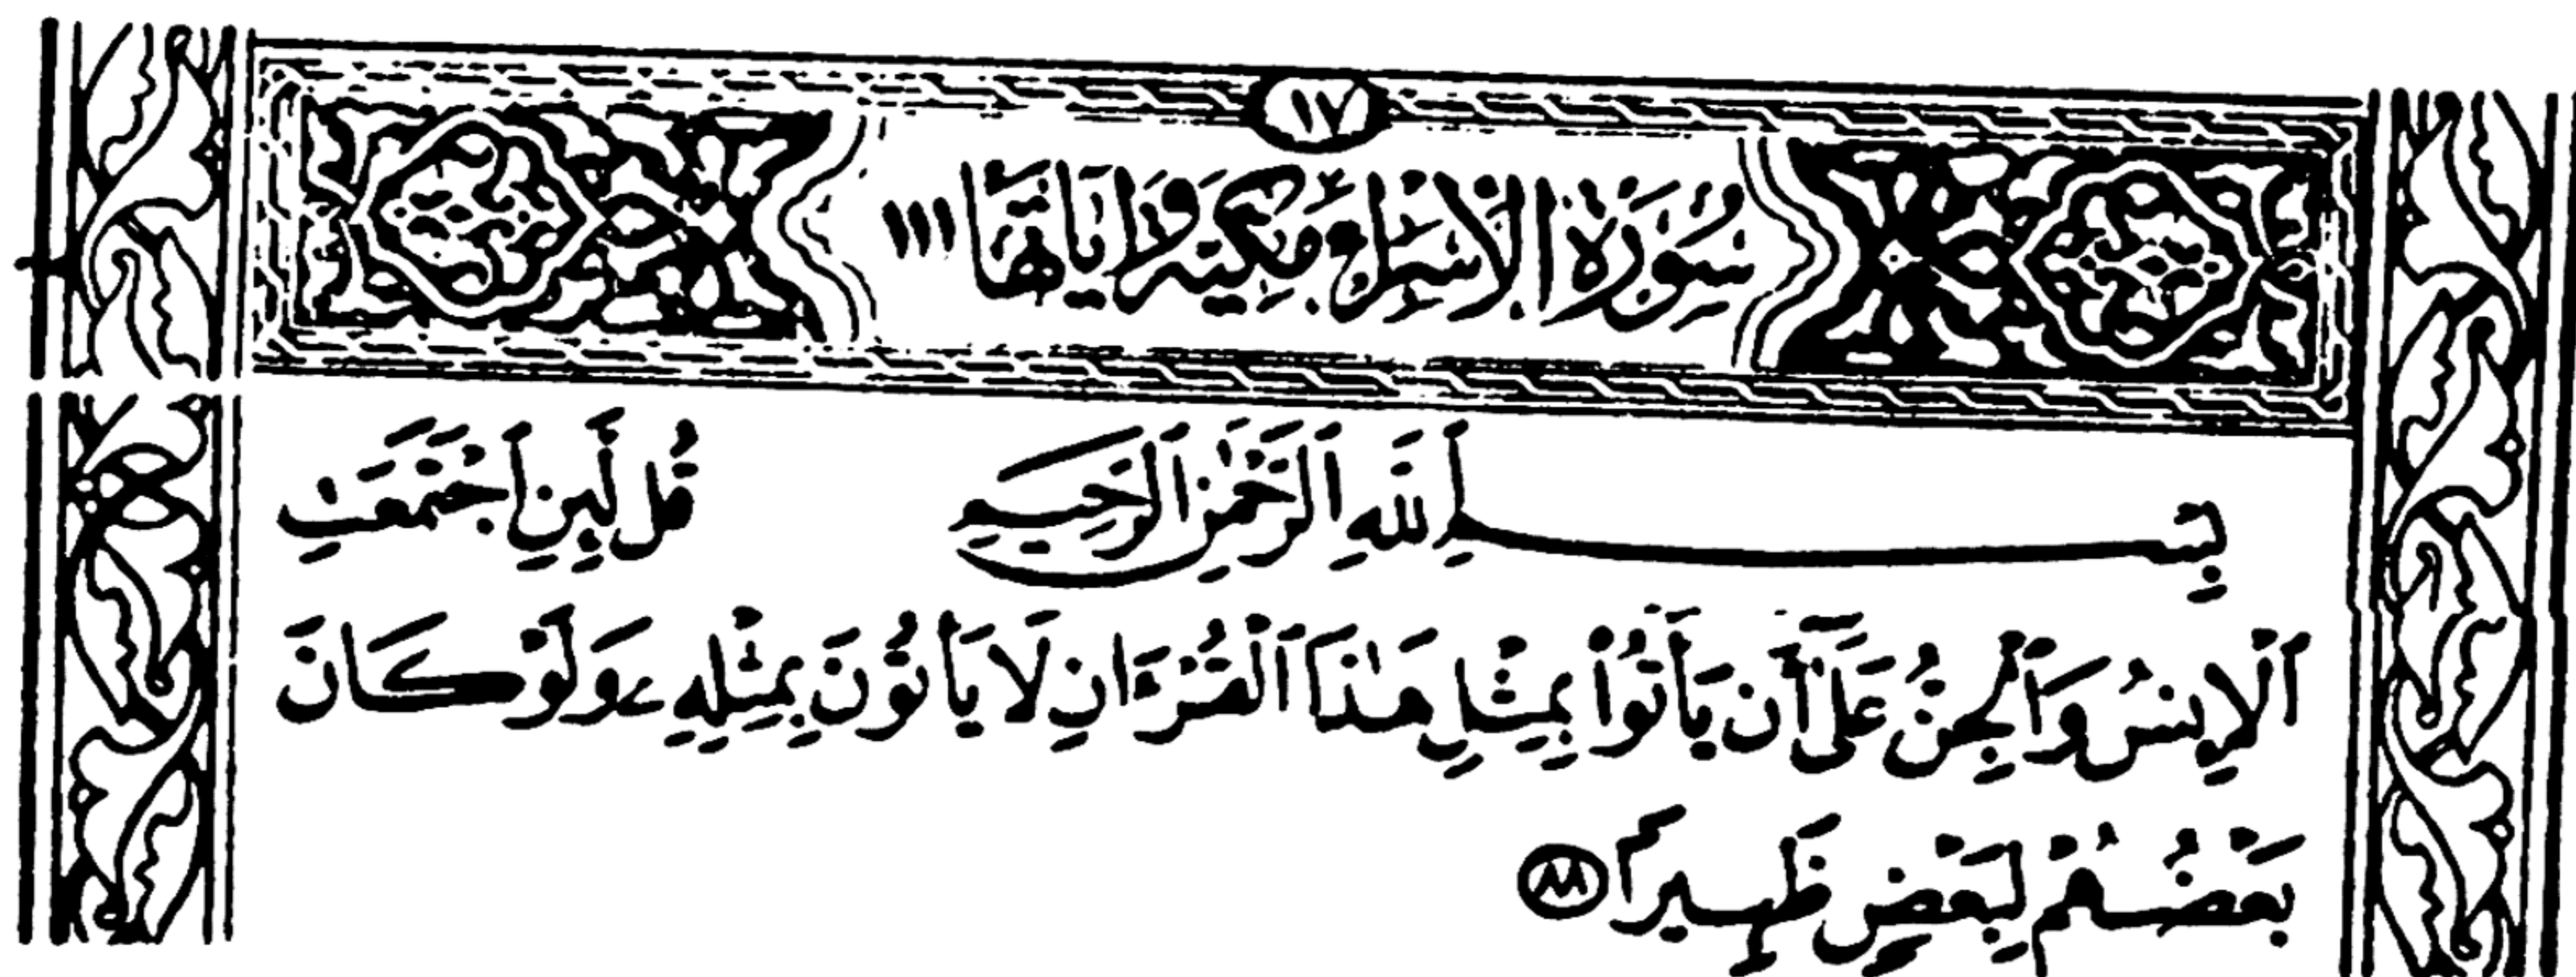 ١٧
سُورَةُ الإِسْرَاءِ مَكِّيَّة وَآيَاتُهَا ١١١
بِسْمِ ٱللَّهِ ٱلرَّحْمَٰنِ ٱلرَّحِيمِ قُل لَّئِنِ ٱجْتَمَعَتِ
ٱلْإِنسُ وَٱلْجِنُّ عَلَىٰٓ أَن يَأْتُوا۟ بِمِثْلِ هَٰذَا ٱلْقُرْءَانِ لَا يَأْتُونَ بِمِثْلِهِۦ وَلَوْ كَانَ
بَعْضُهُمْ لِبَعْضٍ ظَهِيرًا ٨٨